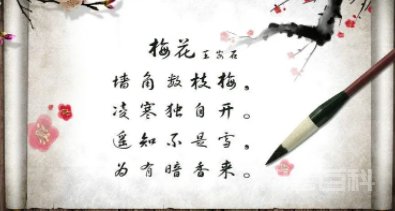 梅花 王安石
墙角数枝梅，
凌寒独自开。
遥知不是雪，
为有暗香来。
百科